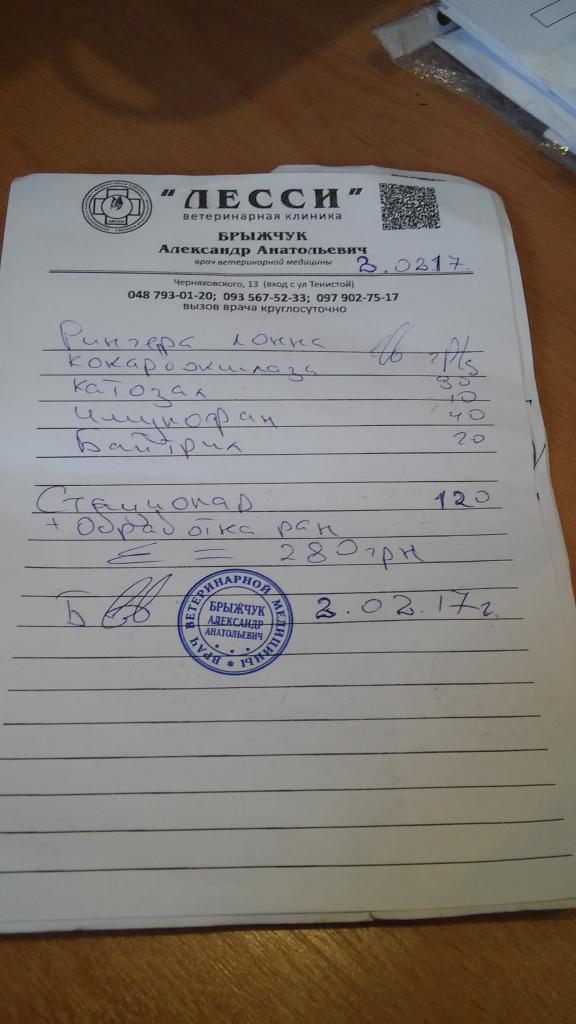 "ЛЕССИ"
ветеринарная клиника
БРЫЖЧУК
Александр Анатольевич
врач ветеринарной медицины
2.0217.
Черняховского, 13 (вход с ул Тенистой)
048 793-01-20; 093 567-52-33; 097 902-75-17
вызов врача круглосуточно
Рингера
кокарбоксилаза
катозал 10
Имунофан 40
Байтрил 20
Стационар 120
+ Обработка ран
Σ = 280грн
Б 2.02.17г.
ВРАЧ ВЕТЕРИНАРНОЙ МЕДИЦИНЫ
БРЫЖЧУК
АЛЕКСАНДР
АНАТОЛЬЕВИЧ